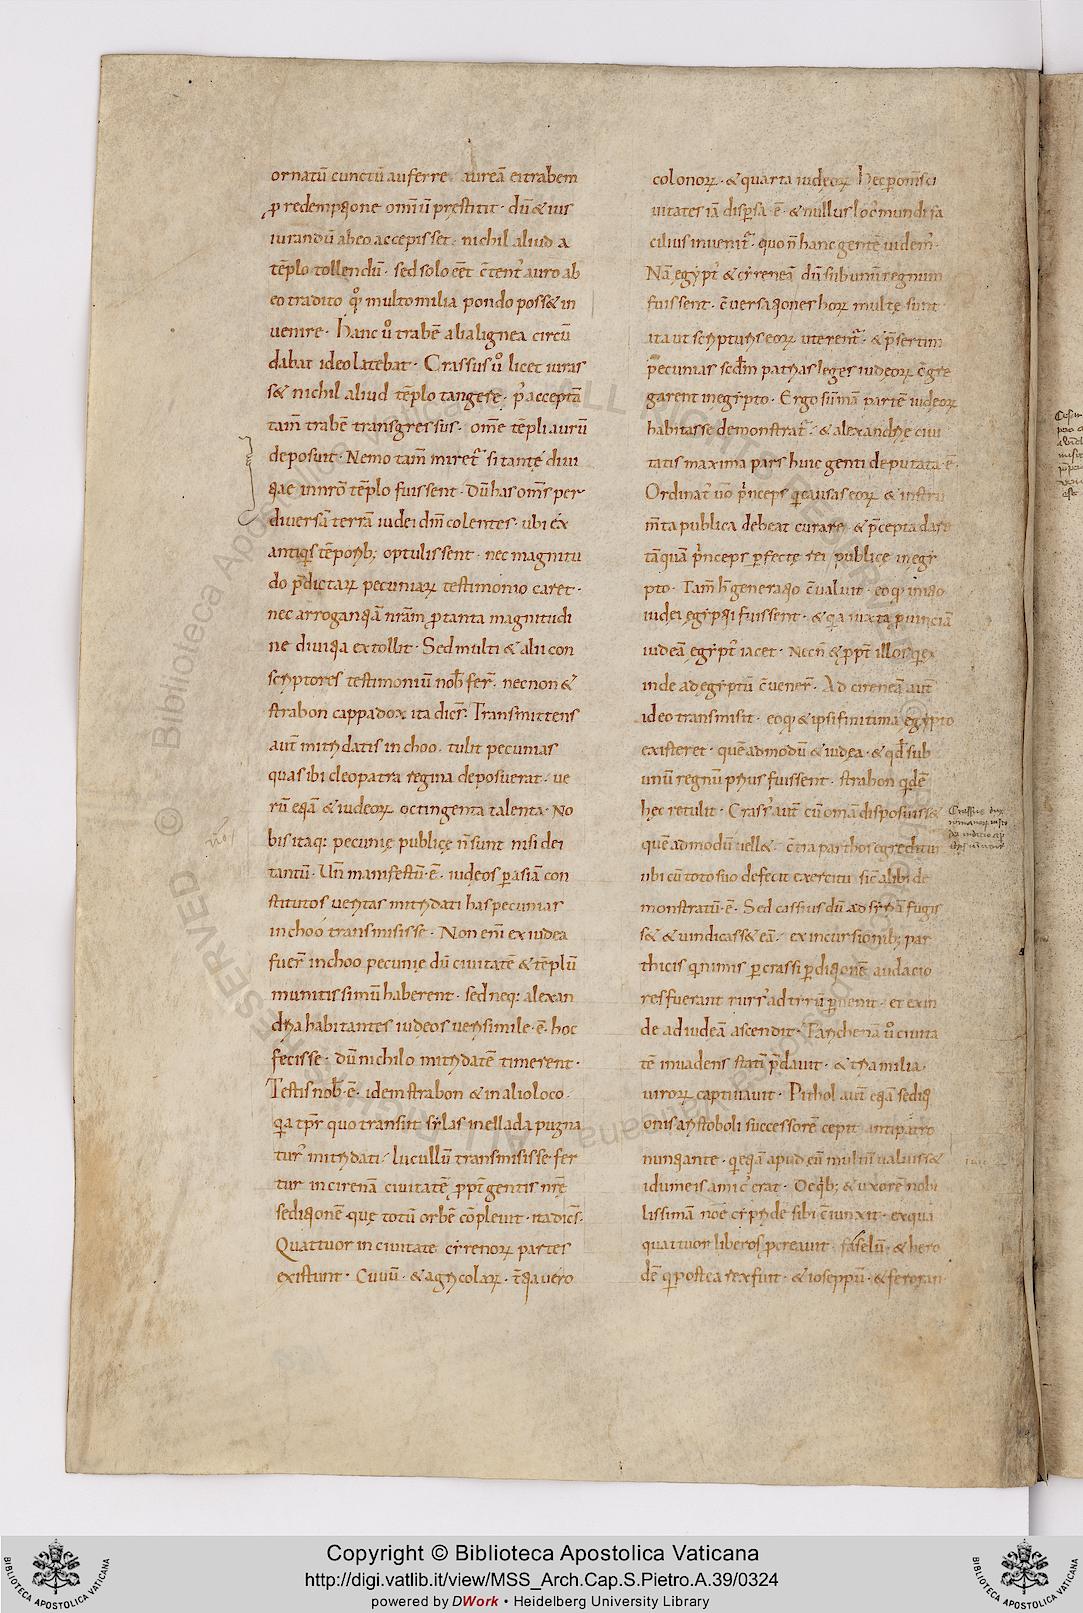 ornatū cunctū auferre aureā ei trabem
p redemptione omīu prestitit · dū & ius
iurandū ab eo accepisset · nichil aliud a
tēplo tollendū · sed solo eēt c̄tentꝰ auro ab
eo tradito qd̄ multo milia pondo poss& in
venire · Hanc ū trabē alia lignea circū
dabat ideo latebat · Crassus ū licet iuras
s& nichil aliud tēplo tangere · p̄ acceptā
tam̄ trabē transgressus · om̄e tēpli aurū
deposuit · Nemo tam̄ miret̄ si tantę divi
tiae in nrō tēplo fuissent · dū has om̄s per
diversā terrā iudei dm̄ colentes · ubi ex
antiqis tēporib; optulissent · nec magnitu
do p̄dictaꝝ pecuniaꝝ testimonio caret ·
nec arrogantiā nrām p tanta magnitudi
ne divitia extollit · Sed multi & alii con
scriptores testimoniū nob̄ fer̄ · necnon &
strabon cappadox ita dicēs · Transmittens
aut̄ mitridatis in choo · tulit pecunias
quas ibi cleopatra regina deposuerat · ve
rū etiā & iudeoꝝ octingenta talenta · No
bis itaq: pecunię publicę n̄ sunt nisi dei
tantū · Un̄ manifestū · ē · iudeos p asiā con
stitutos veritas mitridati has pecunias
in choo transmisisse · Non em̄ ex iudea
fuer̄ in choo pecunie dū civitatē & tēplū
munitissimū haberent · sed neq: alexan
dria habitantes iudeos verisimile · ē · hoc
fecisse · dū nichilo mitridatē timerent ·
Testis nob̄ · ē · idem strabon & in alio loco ·
qa tpr̄ quo transiit syllas in ellada pugna
turꝰ mitridati · lucullū transmisisse fer
tur in cirenā civitatē ppt̄ gentis nrę̄
seditionē · quę totū orbē cōplevit · ita dicēs ·
Quattuor in civitate cyrenoꝝ partes
existunt · Civiū · & agricolaꝝ · t̄tia vero
colonoꝝ · & quarta iudęoꝝ Hec p om̄s ci
vitates iā dispsa · ē · & nullus locꝰ mundi fa
cilius invenit̄ · quo n̄ hanc gentē videm̄ ·
Nā egyptꝰ & cyreneā dū sub unū regnum
fuissent · c̄versationes hoꝝ multę sunt
ita ut scripturis eoꝝ uterent̄ · & p̄sertim
pecunias scdm̄ patrias leges iudeoꝝ c̄gre
garent in egypto · Ergo sum̄ā partē iudeoꝝ
habitasse demonstrat̄ · & alexandrię civi
tatis maxima pars huic genti deputata · ē ·
Ordinatꝰ v̄o p̄nceps qi causas eoꝝ & instru
m̄ta publica debeat curare & p̄cepta dare
tāquā p̄nceps pfectę rei publicę in egy
pto · Tam̄ h̄ generatio c̄valuit · eo qd̄ initio
iudei egyptii fuissent · & qa iuxta p̄vinciā
iudeā egyptꝰ iacet ·
inde ad egyptū c̄vener̄ · Ad cireneā aut̄
ideo transmisit · eo qd̄ & ipsi finitima egypto
existeret · quē admodū & iudea · & qd̄ sub
unū regnū prius fuissent · strabon qdē
hęc retulit · Crassꝰ aut̄ cū om̄ā disposuiss&
quē admodū vell& · c̄tra parthos egreditur
ubi cū toto suo defecit exercitu sic̄ alibi de
monstratū · ē · Sed cassius dū ad syriā fugis
s& & vindicass& eā · ex incursionib; par
thicis q nimis p crassi pditionē audacio
res fuerant rursꝰ ad tyrū p̄venit · et exin
de ad iudeā ascendit · Taricheiā ū civita
tē invadens statī p̄davit · & tria milia
viroꝝ captivavit · Pithol aut̄ etiā seditiⷪ
onis aristoboli successorē cepit antipatro
nuntiante · qi etiā apud eū multū valuiss&
idumeis amicꝰ erat · & uxorē nobi
lissimā noē cypride sibi c̄iunxit · ex qua
quattuor liberos p̄creavit · faselū · & hero
dē qi postea rex fuit · & ioseppū · & feroran
Crassus dux
romanorū
Copyright © Biblioteca Apostolica Vaticana
http://digi.vatlib.it/view/MSS_Arch.Cap.S.Pietro.A.39/0324
powered by DWork • Heidelberg University Library
BIBLIOTECA APOSTOLICA VATICANA
BIBLIOTECA APOSTOLICA VATICANA
© Biblioteca Apostolica Vaticana ALL RIGHTS RESERVED
© Biblioteca Apostolica Vaticana ALL RIGHTS RESERVED